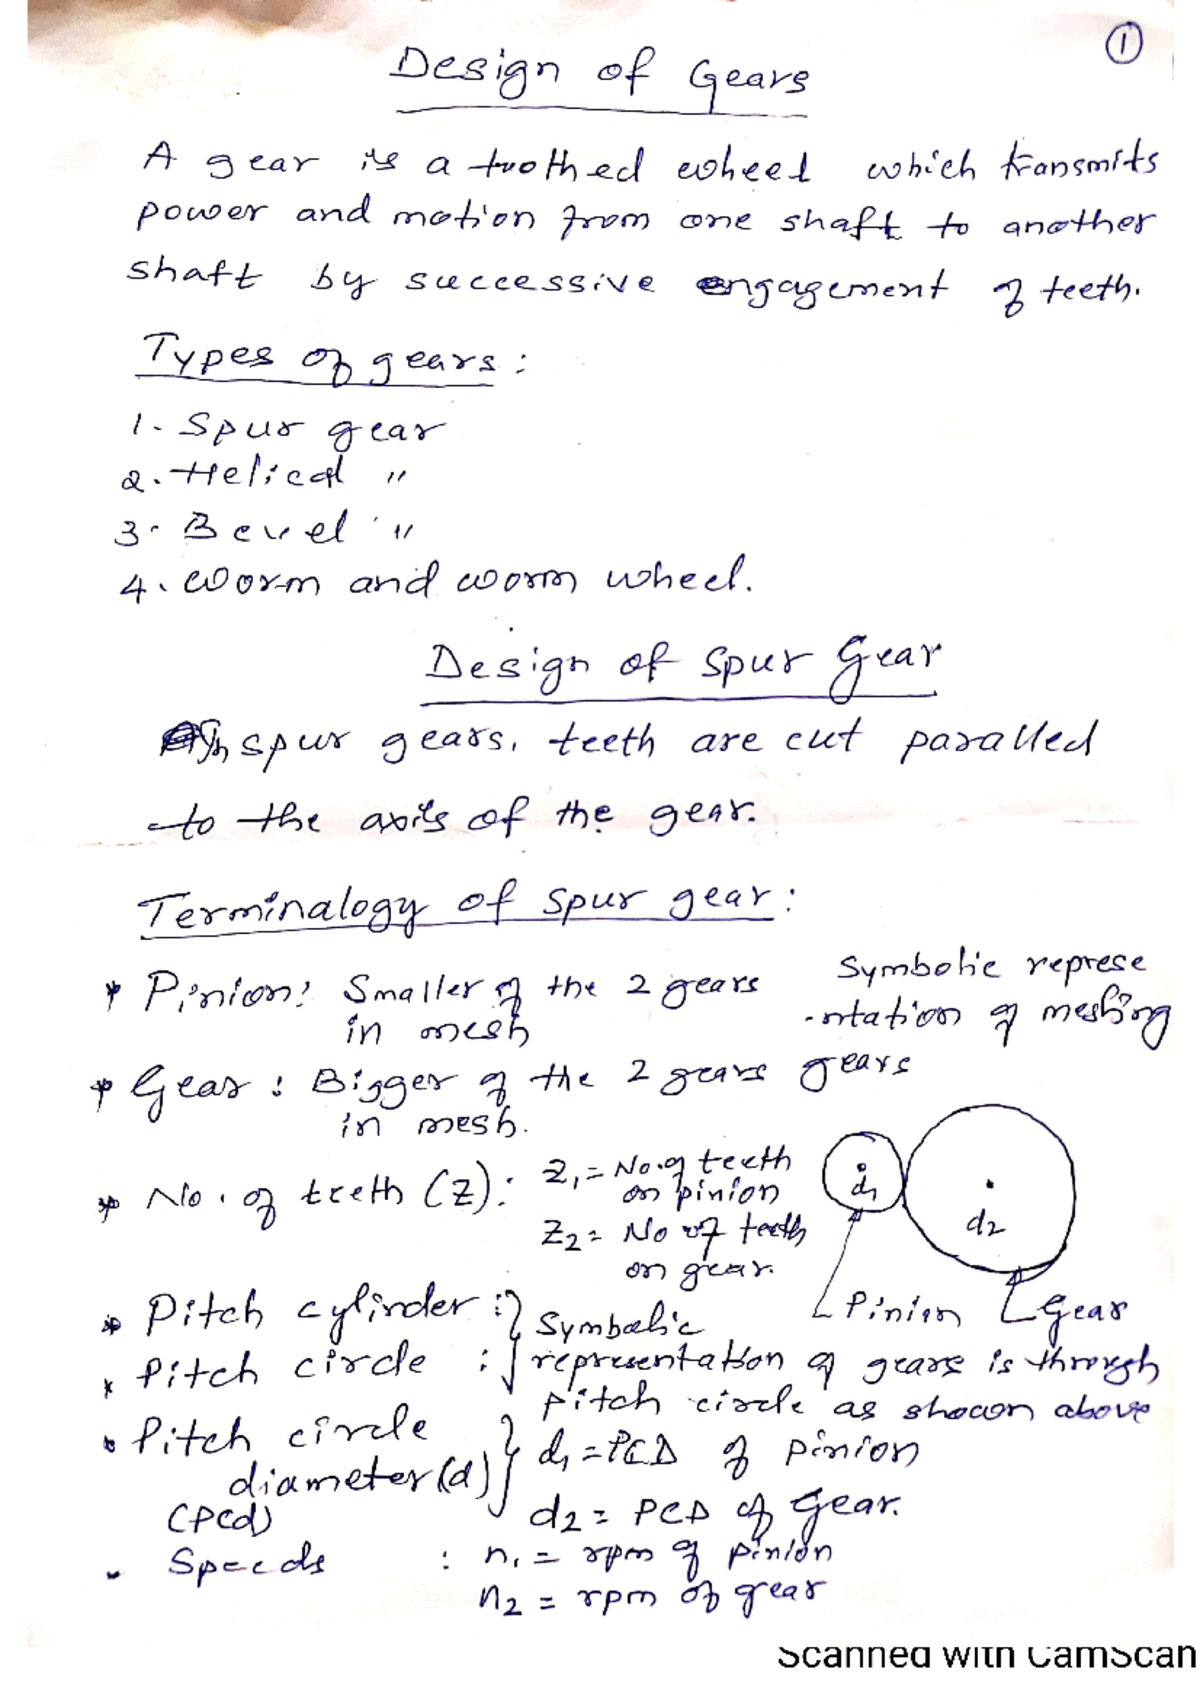 ①
Design of Gears
A gear is a toothed wheel which transmits
power and motion from one shaft to another
shaft by successive engagement of teeth.
Types of gears :
1. Spur gear
2. Helical "
3. Bevel "
4. Worm and worm wheel.
Design of Spur Gear
In spur gears, teeth are cut parallel
to the axis of the gear.
Terminalogy of spur gear :
* Pinion: Smaller of the 2 gears
in mesh
Symbolic represe
-ntation of meshing
gears
* Gear : Bigger of the 2 gears
in mesh.
* No. of teeth (Z): Z1 = No. of teeth
on pinion
Z2 = No of teeth
on gear.
d1
d2
Pinion
Gear
* Pitch cylinder :} Symbolic
* Pitch circle :} representation of gears is through
pitch circle as shown above
• Pitch circle
diameter (d)} d1 = PCD of pinion
(Pcd) d2 = PCD of Gear.
- Speeds : n1 = rpm of pinion
n2 = rpm of gear
Scanned with CamScan